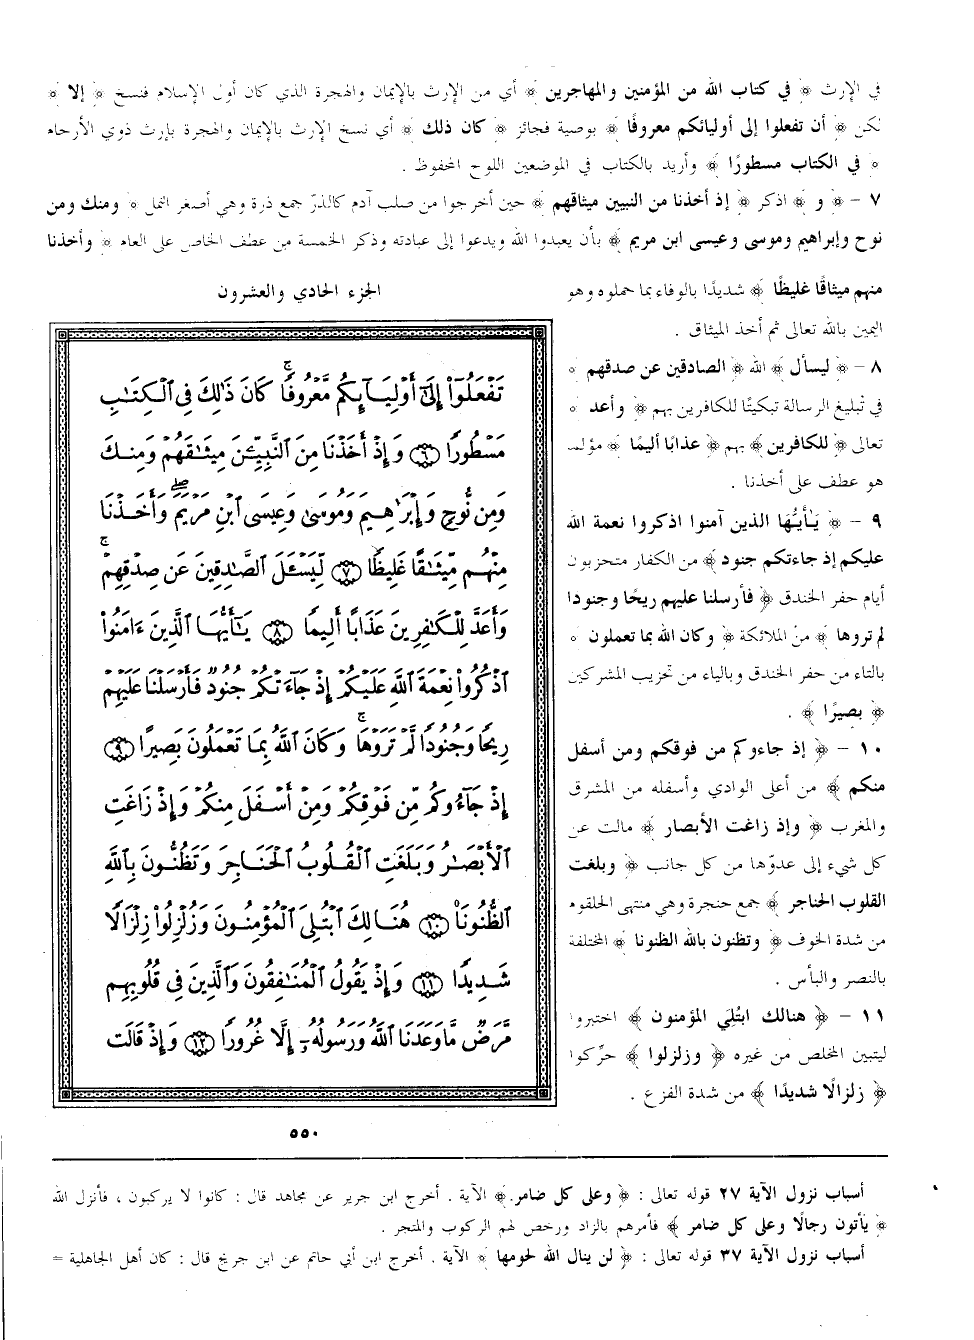 في الإرث ﴿ في كتاب الله من المؤمنين والمهاجرين ﴾ أي من الإرث بالإيمان والهجرة الذي كان أول الإسلام فنسخ ﴿ إلا ﴾
لكن ﴿ أن تفعلوا إلى أوليائكم معروفًا ﴾ بوصية فجائز ﴿ كان ذلك ﴾ أي نسخ الإرث بالإيمان والهجرة بإرث ذوي الأرحام
﴿ في الكتاب مسطورًا ﴾ وأريد بالكتاب في الموضعين اللوح المحفوظ .
٧ – ﴿ و ﴾ اذكر ﴿ إذ أخذنا من النبيين ميثاقهم ﴾ حين أخرجوا من صلب آدم كالذرّ جمع ذرة وهي أصغر النمل ﴿ ومنك ومن
نوح وإبراهيم وموسى وعيسى ابن مريم ﴾ بأن يعبدوا الله ويدعوا إلى عبادته وذكر الخمسة من عطف الخاص على العام ﴿ وأخذنا
منهم ميثاقًا غليظًا ﴾ شديدًا بالوفاء بما حملوه وهو
اليمين بالله تعالى ثم أخذ الميثاق .
٨ – ﴿ ليسأل ﴾ الله ﴿ الصادقين عن صدقهم ﴾
في تبليغ الرسالة تبكيتًا للكافرين بهم ﴿ وأعد ﴾
تعالى ﴿ للكافرين ﴾ بهم ﴿ عذابًا أليمًا ﴾ مؤلمًا
هو عطف على أخذنا .
٩ – ﴿ يٰأيُّها الذين آمنوا اذكروا نعمة الله
عليكم إذ جاءتكم جنود ﴾ من الكفار متحزبون
أيام حفر الخندق ﴿ فأرسلنا عليهم ريحًا وجنودا
لم تروها ﴾ من الملائكة ﴿ وكان الله بما تعملون ﴾
بالتاء من حفر الخندق وبالياء من تحزيب المشركين
﴿ بصيرًا ﴾ .
١٠ – ﴿ إذ جاءوكم من فوقكم ومن أسفل
منكم ﴾ من أعلى الوادي وأسفله من المشرق
والمغرب ﴿ وإذ زاغت الأبصار ﴾ مالت عن
كل شيء إلى عدوّها من كل جانب ﴿ وبلغت
القلوب الحناجر ﴾ جمع حنجرة وهي منتهى الحلقوم
من شدة الخوف ﴿ وتظنون بالله الظنونا ﴾ المختلفة
بالنصر واليأس .
١١ – ﴿ هنالك ابتُلِي المؤمنون ﴾ اختبروا
ليتبين المخلص من غيره ﴿ وزلزلوا ﴾ حرِّكوا
﴿ زلزالًا شديدًا ﴾ من شدة الفزع .
الجزء الحادي والعشرون
تَفْعَلُوٓا۟ إِلَىٰٓ أَوْلِيَآئِكُم مَّعْرُوفًا ۚ كَانَ ذَٰلِكَ فِى ٱلْكِتَٰبِ
مَسْطُورًا ﴿٦﴾ وَإِذْ أَخَذْنَا مِنَ ٱلنَّبِيِّـۧنَ مِيثَٰقَهُمْ وَمِنكَ
وَمِن نُّوحٍ وَإِبْرَٰهِيمَ وَمُوسَىٰ وَعِيسَى ٱبْنِ مَرْيَمَ ۖ وَأَخَذْنَا
مِنْهُم مِّيثَٰقًا غَلِيظًا ﴿٧﴾ لِّيَسْـَٔلَ ٱلصَّٰدِقِينَ عَن صِدْقِهِمْ ۚ
وَأَعَدَّ لِلْكَٰفِرِينَ عَذَابًا أَلِيمًا ﴿٨﴾ يَٰٓأَيُّهَا ٱلَّذِينَ ءَامَنُوا۟
ٱذْكُرُوا۟ نِعْمَةَ ٱللَّهِ عَلَيْكُمْ إِذْ جَآءَتْكُمْ جُنُودٌ فَأَرْسَلْنَا عَلَيْهِمْ
رِيحًا وَجُنُودًا لَّمْ تَرَوْهَا ۚ وَكَانَ ٱللَّهُ بِمَا تَعْمَلُونَ بَصِيرًا ﴿٩﴾
إِذْ جَآءُوكُم مِّن فَوْقِكُمْ وَمِنْ أَسْفَلَ مِنكُمْ وَإِذْ زَاغَتِ
ٱلْأَبْصَٰرُ وَبَلَغَتِ ٱلْقُلُوبُ ٱلْحَنَاجِرَ وَتَظُنُّونَ بِٱللَّهِ
ٱلظُّنُونَا۠ ﴿١٠﴾ هُنَالِكَ ٱبْتُلِىَ ٱلْمُؤْمِنُونَ وَزُلْزِلُوا۟ زِلْزَالًا
شَدِيدًا ﴿١١﴾ وَإِذْ يَقُولُ ٱلْمُنَٰفِقُونَ وَٱلَّذِينَ فِى قُلُوبِهِم
مَّرَضٌ مَّا وَعَدَنَا ٱللَّهُ وَرَسُولُهُۥٓ إِلَّا غُرُورًا ﴿١٢﴾ وَإِذْ قَالَت
٥٥٠
أسباب نزول الآية ٢٧ قوله تعالى : ﴿ وعلى كل ضامر. ﴾ الآية . أخرج ابن جرير عن مجاهد قال : كانوا لا يركبون ، فأنزل الله
﴿ يأتون رجالًا وعلى كل ضامر ﴾ فأمرهم بالزاد ورخص لهم الركوب والمتجر .
أسباب نزول الآية ٣٧ قوله تعالى : ﴿ لن ينال الله لحومها ﴾ الآية . أخرج ابن أبي حاتم عن ابن جريج قال : كان أهل الجاهلية =